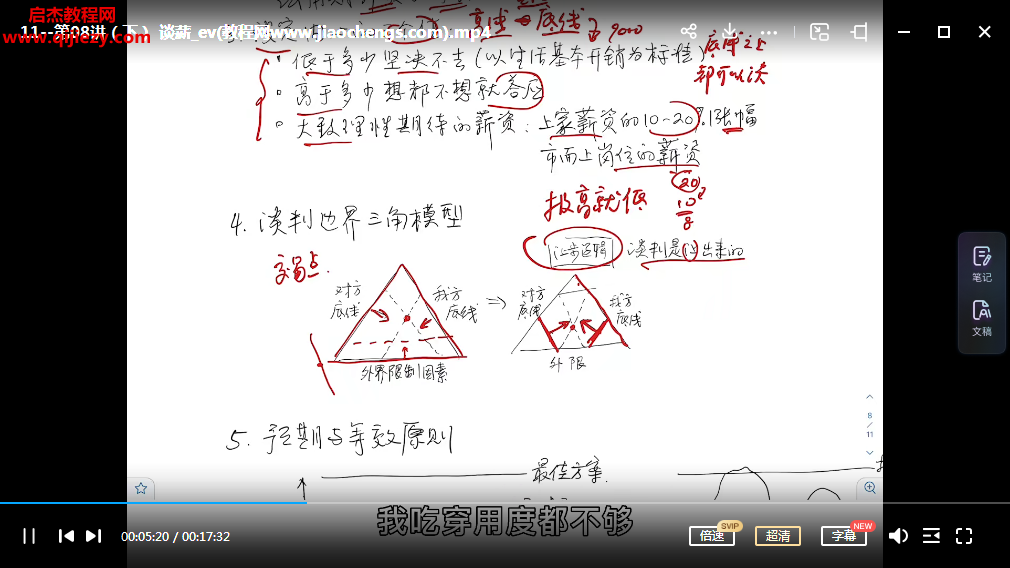 启杰教程网
www.qijiezy.com
11--第08讲（下） 谈薪_ev(教程网www.jiaochengs.com).mp4
底线
9000
低于多少坚决不去（以生活基本开销为标准）
底牌之上
都可以谈
高于多少想都不想就答应
大致理性期待的薪资：上家薪资的10~20%涨幅
市面上岗位的薪资
报高就低
20
10
8
4. 谈判边界三角模型
让步逻辑 谈判是让出来的
交易点
对方
底线
我方
底线
外界限制因素
对方
底线
我方
底线
外限
5. 预期与等效原则
最佳方案
笔记
文稿
8
/
11
我吃穿用度都不够
00:05:20 / 00:17:32
倍速
SVIP
超清
字幕
NEW